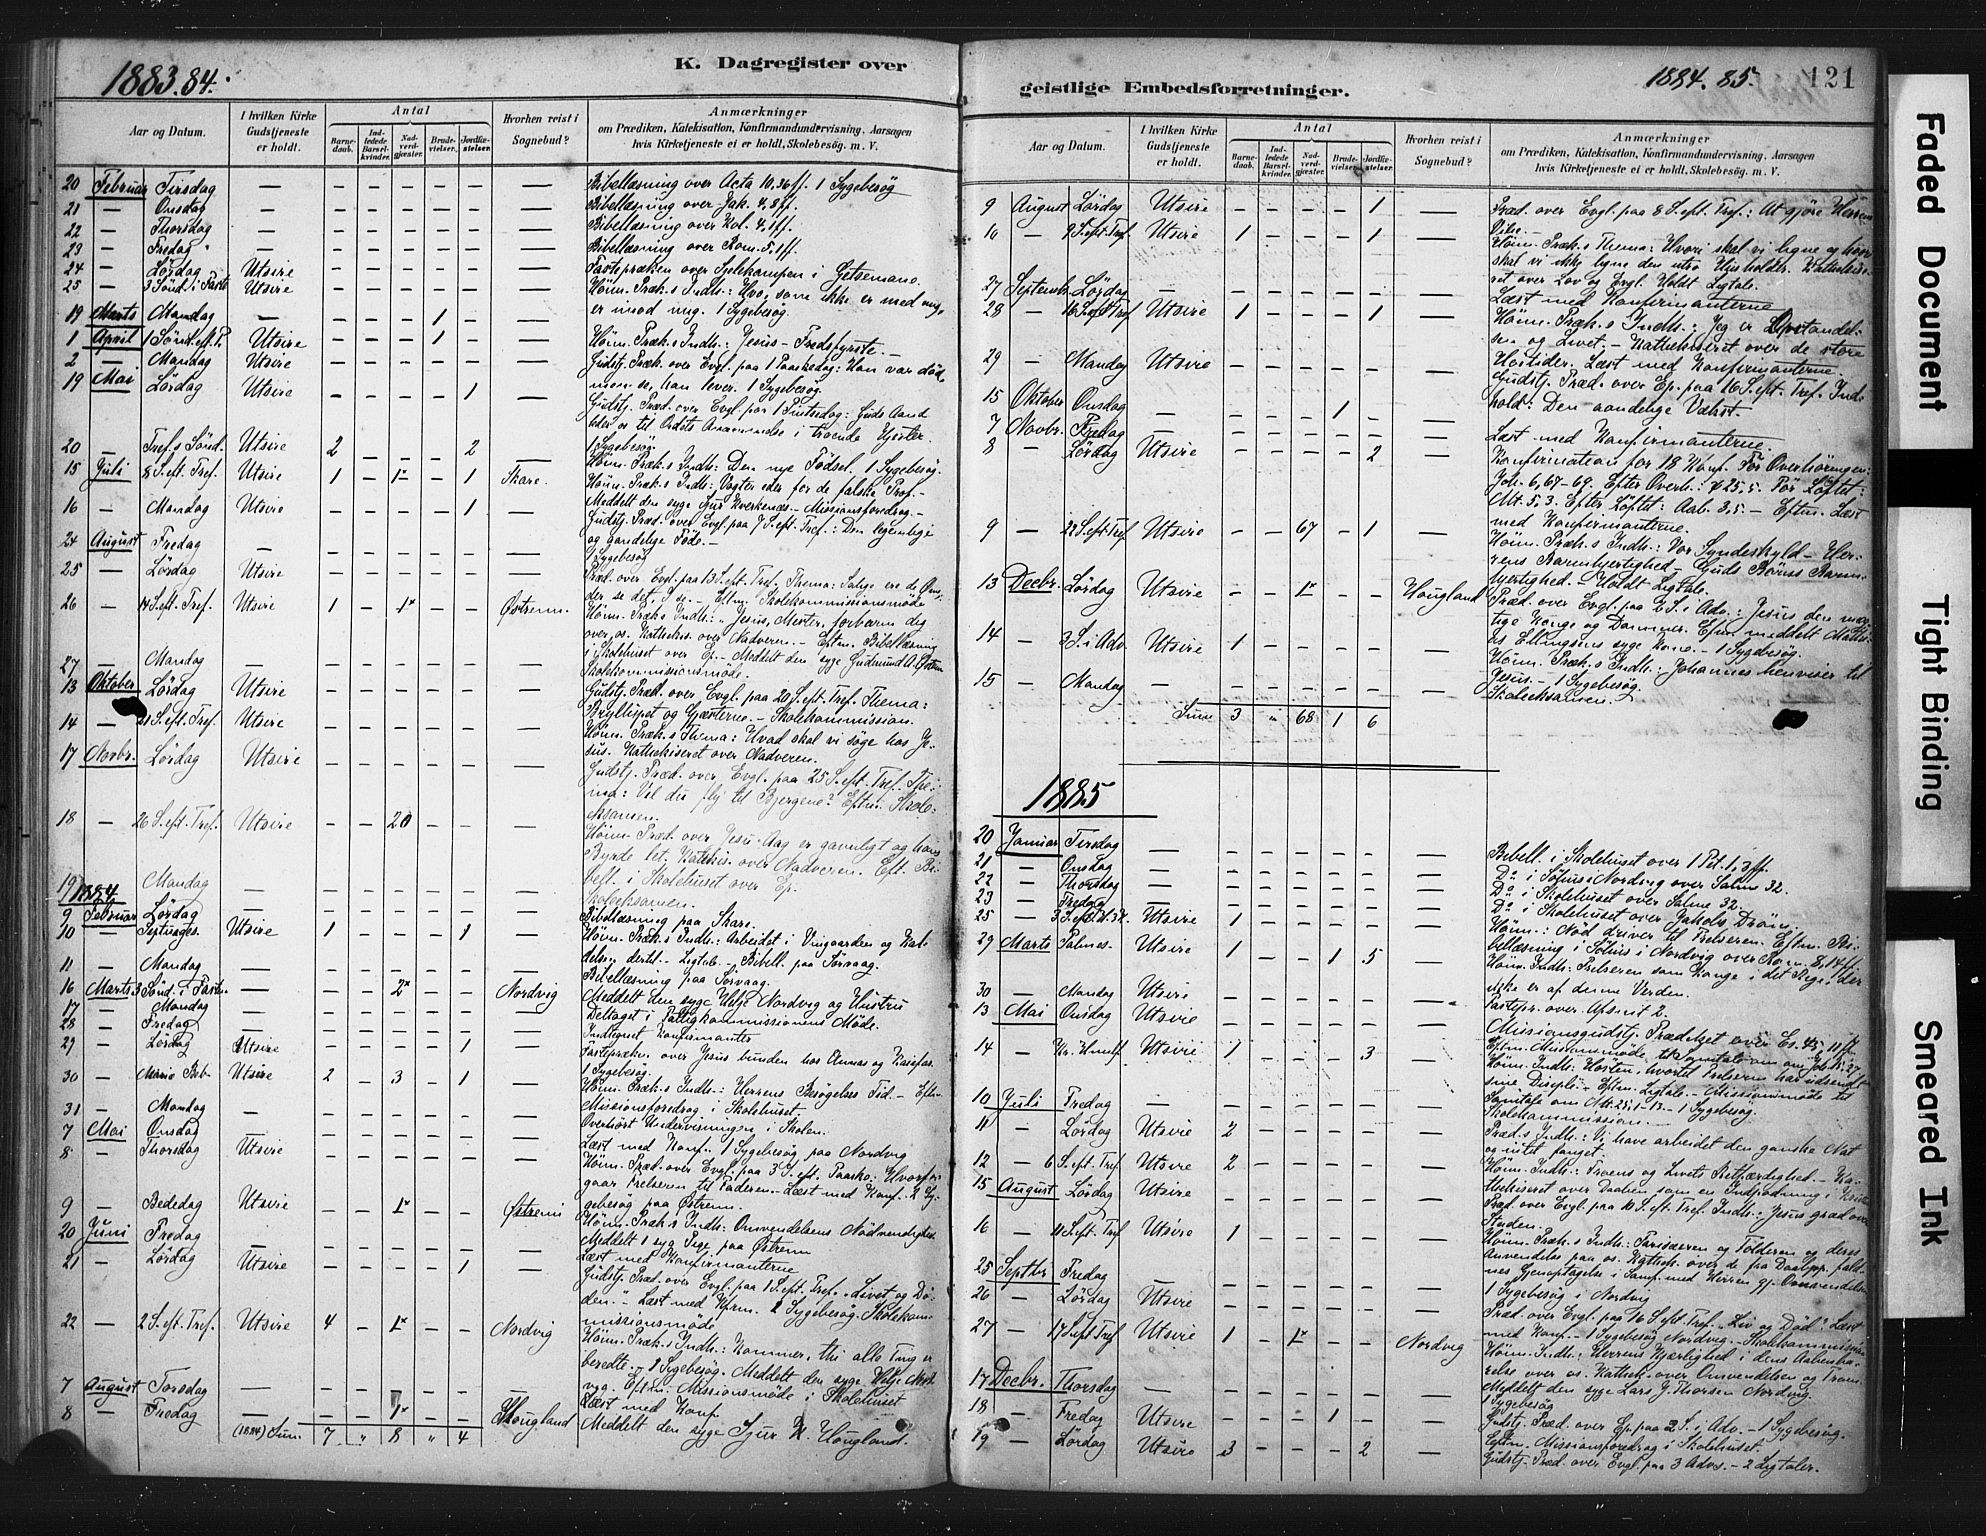 1883.84.
K. Dagregister over
Aar og Datum.
I hvilken Kirke Gudstjeneste er holdt.
Antal
Barne-daab.
Ind-ledede Barsel-kvinder.
Nad-verd-gjæster.
Brude-vielser.
Jordfæ-stelser.
Hvorhen reist i Sognebud?
Anmærkninger
om Prædiken, Katekisation, Konfirmandundervisning, Aarsagen
hvis Kirketjeneste ei er holdt, Skolebesøg. m. V.
20 Februar Tirsdag — Bibellæsning over Acta 10,36 ff. 1 Sygebesøg
21 — Onsdag — Bibellæsning over Jak. 4,8 ff.
22 — Thorsdag — Bibellæsning over Kol. 4,1 ff.
23 — Fredag — Bibellæsning over Rom. 5,1 ff.
24 — Lørdag Utsire Fastepræken over Sjelekampen i Getsemane.
25 — 3 Sönd. i Faste Utsire Høim. Præk.s Indh.: Hvo, som ikke er med mig,
er imod mig. 1 Sygebesøg.
19 Marts Mandag — 1
1 April 1 Sönd. e. P. Utsire 1 Høim. Præk.s Indh.: Jesus – Fredsfyrste. —
2 — Mandag Utsire Gudstj. Præk. over Evgl. paa 1 Paaskedag: Han var död,
men se, han lever. 1 Sygebesøg.
19 Mai Lørdag Utsire 1 Gudstj. Præd. over Evgl. paa 1 Pintsedag: Guds Aand
leder os til Ordets Annammelse i troende Hjerter.
20 — Tref.s Sönd. Utsire 2 2 1 Sygebesøg
Høim. Præk.s Indh.: Den nye Fødsel. 1 Sygebesøg.
15 Juli 8 S. eft. Tref. Utsire 1 1× 1 Skare. Høim. Præk.s Indh.: Vogter eder for de falske Prof. —
Meddelt den syge Sjur Kverkenæs. – Missionsforedrag. —
16 — Mandag Utsire 1 Gudstj. Præd. over Evgl. paa 7 S. eft. Tref.: Den legemlige
og aandelige Føde. —
24 August Fredag — 1 Sygebesøg
25 — Lørdag Utsire Præd. over Evgl. paa 13 S. eft. Tref. Thema: Salige ere de Øine,
der se det, I se. – Eftm. Skolekommissionsmöde
26 — 14 S. eft. Tref. Utsire 1 1× Østrem. Høim. Præk.s Indh.: „Jesus, Mester, forbarm dig
over os. Kathekis. over Nadveren. – Eftm. Bibellæsning
i Skolehuset over Ep. – Meddelt den syge Gudmund A. Østrem
27 — Mandag — Skolekommissionsmøde.
13 Oktober Lørdag Utsire Gudstj. Præd. over Evgl. paa 20 S. eft. Tref. Thema:
Bryllupet og Gjæsterne. – Skolekommission.
14 — 21 S. eft. Tref. Utsire Høim. Præk.s Thema: Hvad skal vi søge hos Je-
sus. Kathekiseret over Nadveren.
17 Novbr. Lørdag Utsire Gudstj. Præd. over Evgl. paa 25 S. eft. Tref. The-
ma: Vil du fly til Bjergene? Eftm. Skole-
eksamen.
18 — 26 S. eft. Tref. Utsire 20 Høim. Præd. over Jesu Aag er gavnligt og hans
Byrde let. Kathekis. over Nadveren. Eft. Bi-
bell. i Skolehuset over Ep.
19 — Mandag — Skoleeksamen.
1884
9 Februar Lørdag — Bibellæsning paa Skare.
10 — Septuages. Utsire 1 1 Høim. Præk.s Indh.: Arbeidet i Vingaarden og Kal-
delsen dertil. – Ligtale. – Bibell. paa Sørvaag.
11 — Mandag — Bibellæsning paa Sørvaag.
16 Marts 3 Sönd. i Faste — 2× Nordvig Meddelt den syge Helge Nordvig og Hustru
17 — Mandag — Deltaget i Fattigkommissionens Møde.
28 — Fredag — Indtegnet Konfirmanter
29 — Lørdag Utsire 1 Fastepræken over Jesus bunden hos Annas og Kaiafas.
1 Sygebesøg.
30 — Mariæ Beb. Utsire 2 3 1 Høim. Præk.s Indh.: Herrens Besøgelses Tid. – Eftm.
Missionsforedrag i Skolehuset.
31 — Mandag — Overhørt Undervisningen i Skolen.
7 Mai Onsdag — Læst med Konf. – 1 Sygebesøg paa Nordvig
8 — Thorsdag Utsire Høim. Præd. over Evgl. paa 3 S. eft. Paaske: Hvorfor
gaar Frelseren til Faderen. – Læst med Konf. 2 Sy-
gebesøg paa Østrem.
9 — Bededag Utsire 1× Østrem Høim. Præk.s Indh.: Omvendelsens Nødvendighed.
Meddelt 1 syg Pige paa Østrem
20 Juni Fredag — Læst med Konfirmanterne
21 — Lørdag Utsire 1 Gudstj. Præd. over Evgl. paa 1 S. eft. Tref. „Livet og Dö-
den.“ – Læst med Kfrm. 2 Sygebesøg. Skolekom-
missionsmøde
22 — 2 S. eft. Tref. Utsire 4 1× Nordvig Høim. Præk.s Indh.: Kommer, thi alle Ting er
beredte. – 2 Sygebesøg. Meddelt den syge Helge Nord-
vig. Eftm. Missionsmøde i Skolehuset
7 August Torsdag — Læst med Konf.
8 — Fredag — 1× Hougland Meddelt den syge Sjur K. Hougland.
(1884) Sum. 7 „ 8 „ 4
geistlige Embedsforretninger.
1884.85.
121
Aar og Datum.
I hvilken Kirke Gudstjeneste er holdt.
Antal
Barne-daab.
Ind-ledede Barsel-kvinder.
Nad-verd-gjæster.
Brude-vielser.
Jordfæ-stelser.
Hvorhen reist i Sognebud?
Anmærkninger
om Prædiken, Katekisation, Konfirmandundervisning, Aarsagen
hvis Kirketjeneste ei er holdt, Skolebesøg. m. V.
9 August Lørdag Utsire 1 Præd. over Evgl. paa 8 S. eft. Tref.: At gjøre Herrens
Vilie. —
10 — 9 S. eft. Tref. Utsire 1 1 Høim. Præk.s Thema: Hvori skal vi ligne og hvori
skal vi ikke ligne den utro Husholder. Kathekise-
ret over Lov og Evgl. Holdt Ligtale.
27 Septemb. Lørdag — Læst med Konfirmanterne
28 — 16 S. eft. Tref Utsire 1 1 Høim. Præk.s Indh.: Jeg er Opstandel-
sen og Livet. – Kathekiseret over de store
Høitider. Læst med Konfirmanterne.
29 — Mandag Utsire Gudstj. Præd. over Ep. paa 16 S. eft. Tref. Ind-
hold: Den aandelige Væxt.
15 Oktober Onsdag — 1
7 Novbr. Fredag — Læst med Konfirmanterne.
8 — Lørdag Utsire 2 Konfirmation for 18 Konf. Før Overhøringen:
Joh. 6,67-69. Efter Overh.: ψ 25,5. Før Løftet:
Mt. 5,3. Efter Løftet: Aab. 3,5. – Eftm. Læst
med Konfirmanterne.
9 — 22 S. eft. Tref Utsire 67 1 Høim. Præk.s Indh.: Vor Syndeskyld – Her-
rens Barmhjertighed – Guds Børns Barm-
hjertighed. – Holdt Ligtale.
13 Decbr. Lørdag Utsire 1× Hougland Præd. over Evgl. paa 2 S. i Adv.: Jesus den mæg-
tige Konge og Dommer. Eftm. meddelt Mathi-
as Ellingsens syge Kone. – 1 Sygebesøg.
14 — 3 S. i Adv. Utsire 1 Høim. Præk.s Indh.: Johannes henviser til
Jesus. – 1 Sygebesøg.
15 — Mandag — Skoleeksamen.
Sum 3 „ 68 1 6
1885
20 Januar Tirsdag — Bibell. i Skolehuset over 1 Pet. 1,3 ff.
21 — Onsdag — Do i Søhus i Nordvig over Salme 32.
22 — Thorsdag — Do i Skolehuset over Salme 32.
23 — Fredag — Do i Skolehuset over Jakobs Drøm.
25 — 3 S. eft. H. 3 K. Utsire 1 Høim.: Nød driver til Frelseren. Eftm. Bi-
bellæsning i Søhus i Nordvig over Rom. 8,14 ff.
29 Marts Palmes. Utsire 1 1 5 Høim. Indh.: Frelseren som Konge i det Rige, der
ikke er af denne Verden.
30 — Mandag Utsire Fastepr. over Afsnit 2.
13 Mai Onsdag Utsire Missionsgudstj. Prædiket over Es. 45, 11 ff.
Eftm. Missionsmøde til Samtale om Joh. 1,
14 — Kr. Himelf. Utsire 1 3 Høim. Indh.: Høsten, hvortil Frelseren har udsendt
sine Disciple. – Eftm. Ligtale. – Missionsmöde til
Samtale om Mt. 25, 1-13. – 1 Sygebesøg.
10 Juli Fredag — Skolekommission. —
11 — Lørdag Utsire 2 Præd.s Indh.: Vi have arbeidet den ganske Nat
og intet fanget.
12 — 6 S. eft. Tref Utsire 2 Høim. Indh.: Troens og Livets Retfærdighed. – Ka-
thekiseret over Daaben som en Indpodning i Kristus
15 August Lørdag Utsire Præd. over Evgl. paa 10 S. eft. Tref. Indh.: Jesus græd over
Staden.
16 — 11 S. eft. Tref Utsire 1 Høim. Præk.s Indh.: Farisæeren og Tolderen og deres
Anvendelse paa os. Kathek. over de fra Daabsp. fald-
nes Gjenoptagelse i Samf. med Herren gj. Omvendelsen
25 Septbr Fredag — 1 Sygebesøg i Nordvig
26 — Lørdag Utsire Præd. over Evgl. paa 16 S. eft. Tref. „Liv og Død“. Læst
med Konf. – 1 Sygebesøg Nordvig. – Skolekommission
27 — 17 S. eft. Tref Utsire 1 1× Nordvig Høim. Indh.: Herrens Kjærlighed i dens Aabenba-
relse over os. Kathek. over Omvendelsen og Troen.
Meddelt den syge Lars J. Thorsen Nordvig.
17 Decbr. Thorsdag — 1 Sygebesøg
18 — Fredag Utsire 1 Gudstj. Præd. over Ep. paa 2 S. i Adv. – 1 Sygebesøg.
Eftm. Missionsforedrag i Skolehuset.
19 — Lørdag Utsire 3 2 Gudstj. Præd. over Evgl. paa 3 Advs. – 2 Ligtaler.
Faded Document
Tight Binding
Smeared Ink